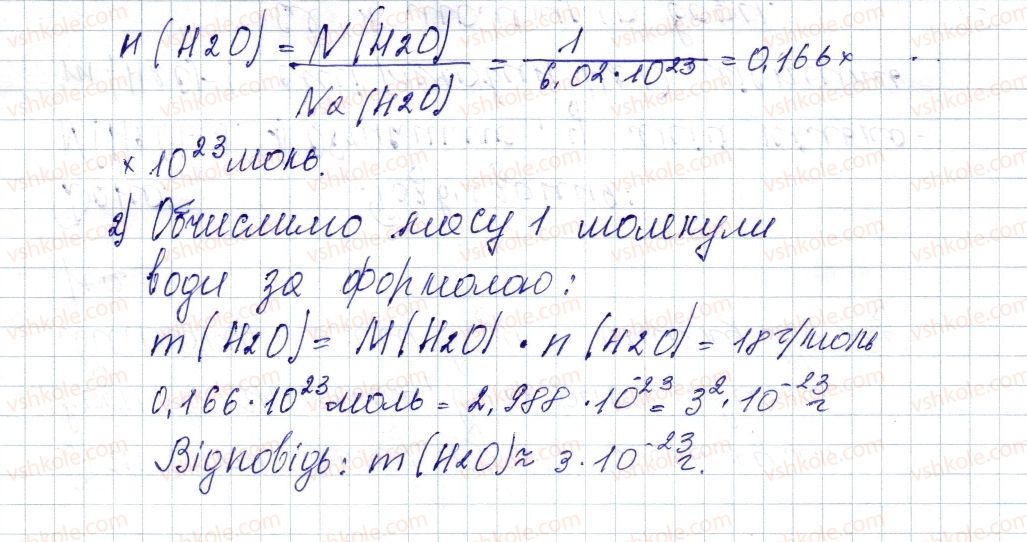 n (H2O) = N (H2O) / Na (H2O) = 1 / 6,02·10²³ = 0,166 ×
× 10²³ моль.
2) Обчислимо масу 1 молекули
води за формолаю:
m (H2O) = M (H2O) · n (H2O) = 18 г/моль
0,166·10²³ моль = 2,988 · 10⁻²³ = 3г · 10⁻²³ г
Відповідь: m (H2O) ≈ 3·10⁻²³ г.